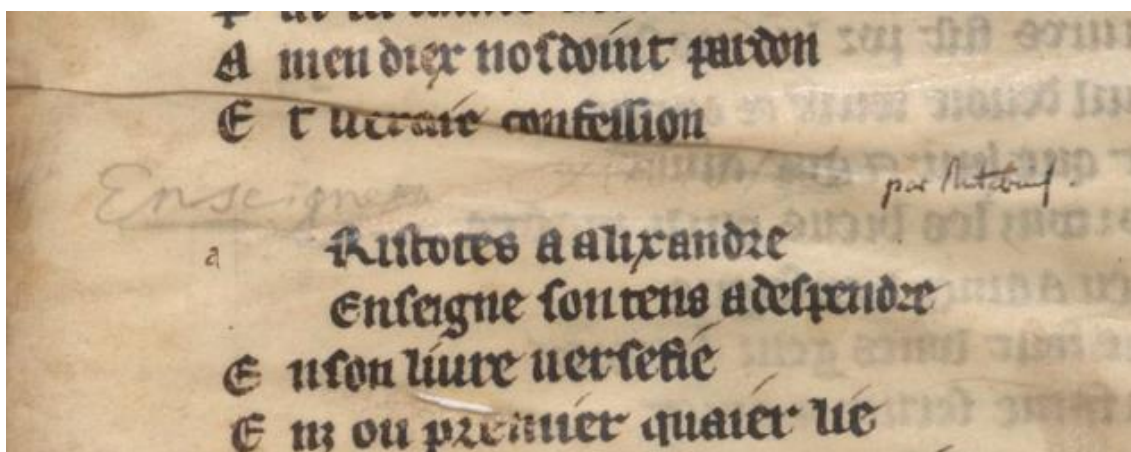 A men diex nos doint pardon
E t ueraie confession
Enseigne
par Rutebeuf.
a Ristotes a alixandre
Enseigne son tens a despendre
E n son liure uersefie
E nz ou premier quaier lié